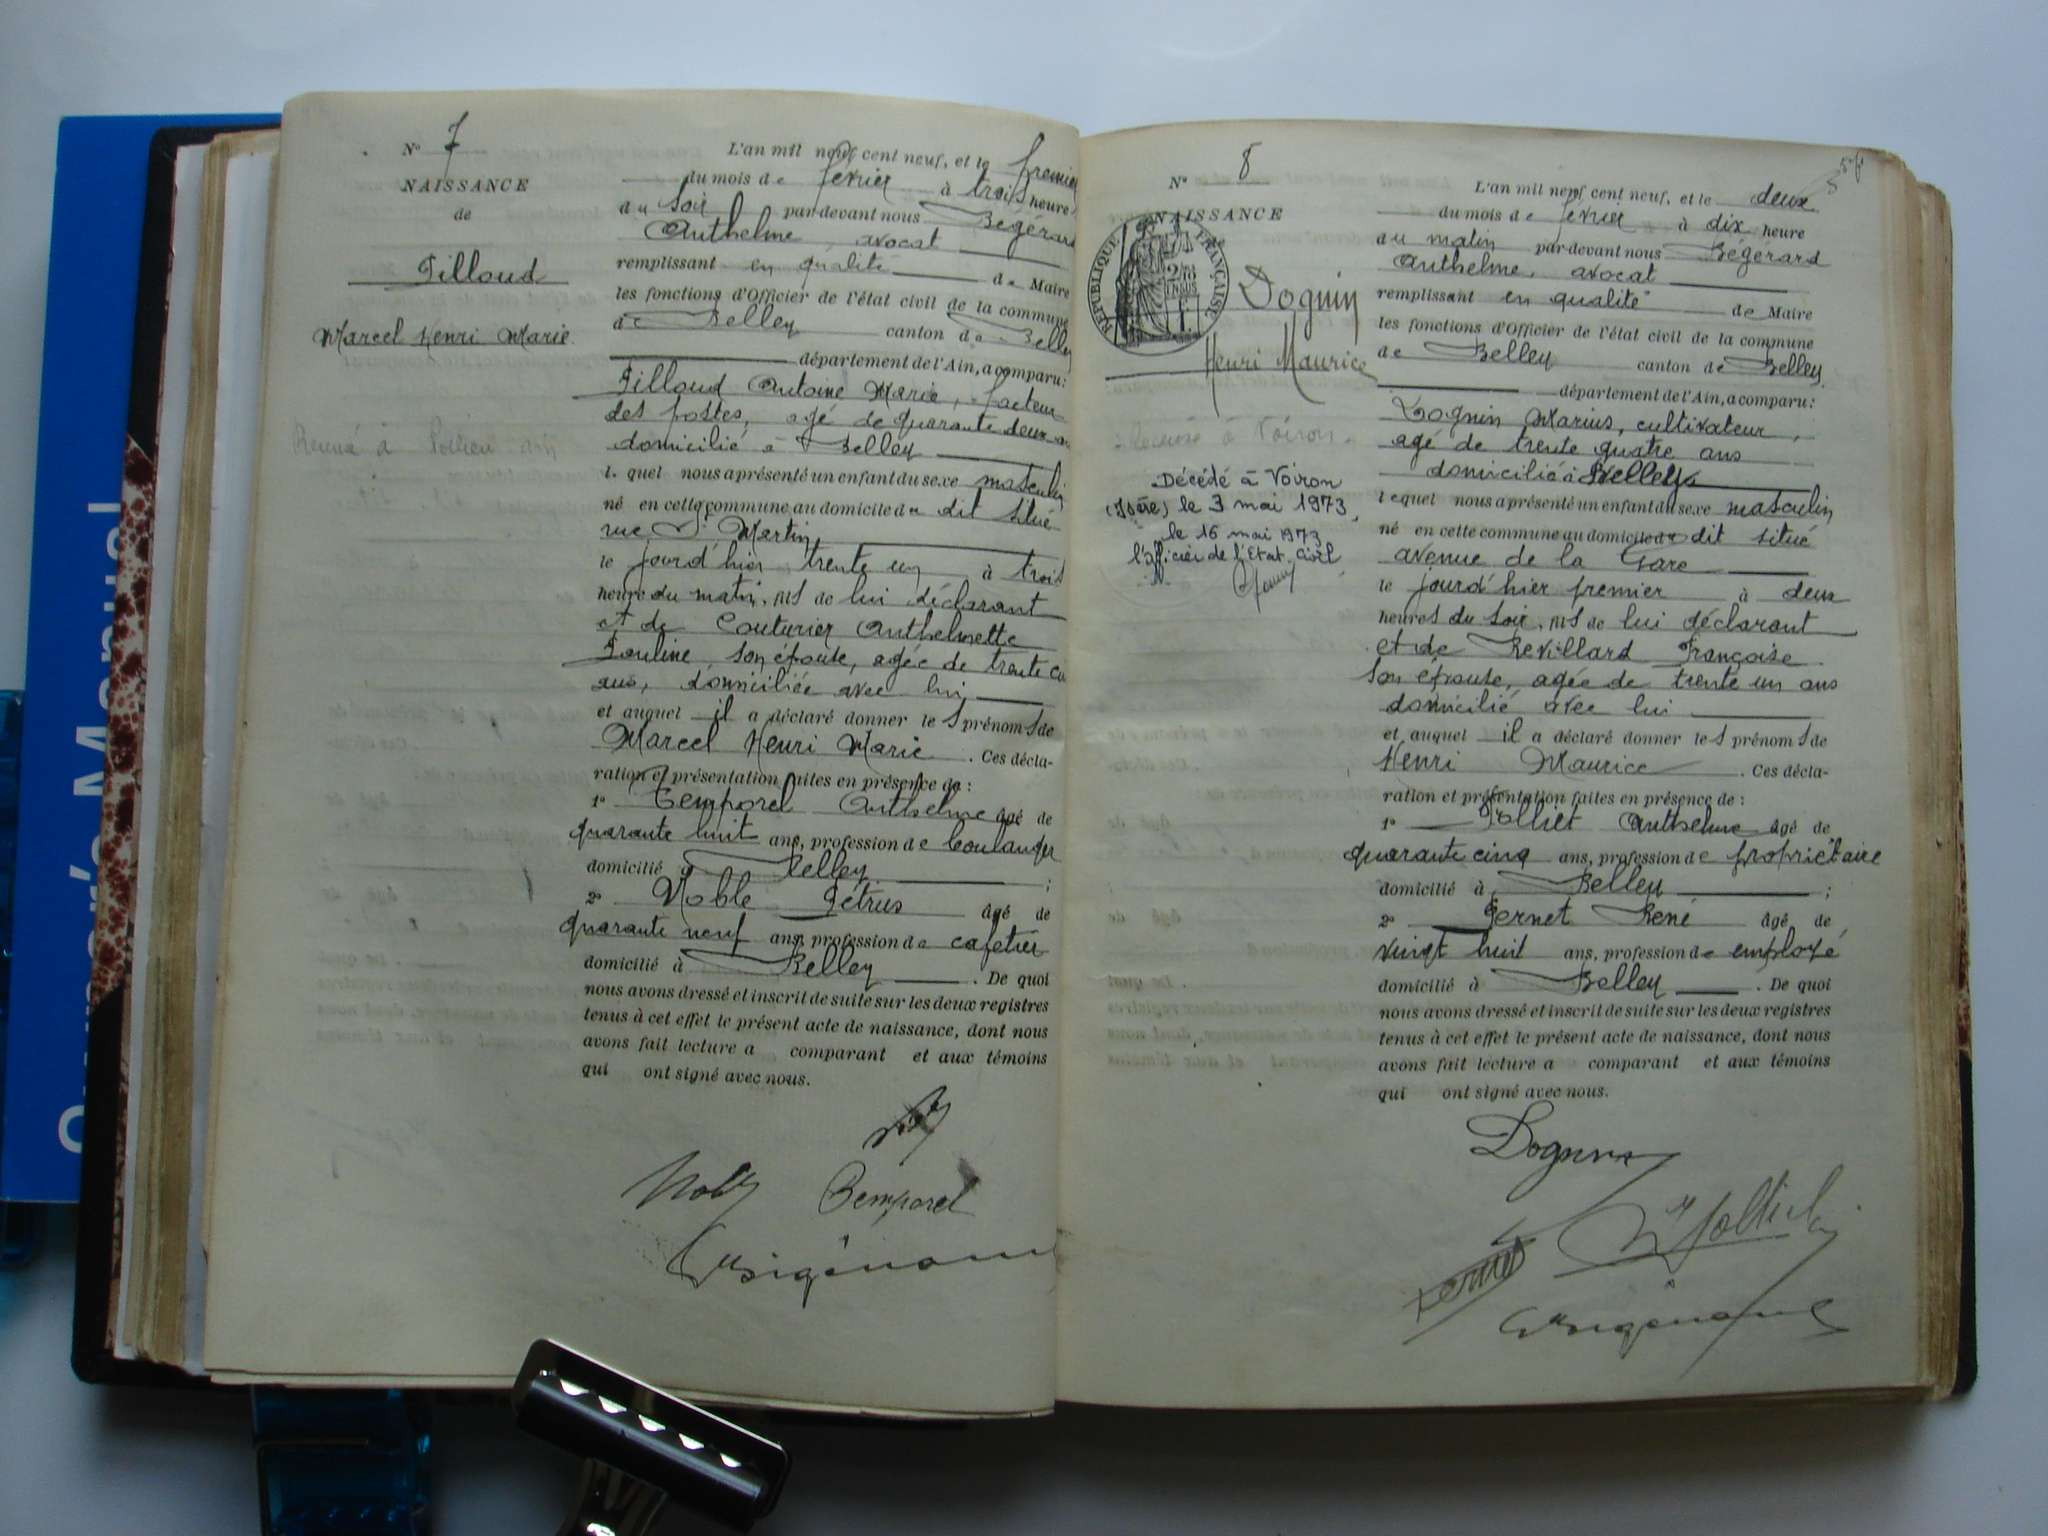 N° 7
NAISSANCE
de
Pilloud
Marcel Henri Marie
L'an mil neuf cent neuf, et le premier
du mois de février à trois heures
du soir par-devant nous Bégérard
Anthelme, avocat
remplissant en qualité de Maire
les fonctions d'Officier de l'état civil de la commune
de Belley canton de Belley
département de l'Ain, a comparu:
Pilloud Antoine Marie, facteur
des postes, agé de quarante deux ans
domicilié à Belley
lequel nous a présenté un enfant du sexe masculin
né en cette commune au domicile du dit situé
rue St Martin
le jourd'hier trente un à trois
heures du matin, fils de lui déclarant
et de Couturier Anthelmette
Pauline, son épouse, agée de trente
ans, domiciliée avec lui
et auquel il a déclaré donner les prénoms de
Marcel Henri Marie. Ces décla-
ration et présentation faites en présence de:
1° Temporel Anthelme âgé de
quarante huit ans, profession de boulanger
domicilié à Belley;
2° Noble Pétrus âgé de
quarante neuf ans, profession de cafetier
domicilié à Belley. De quoi
nous avons dressé et inscrit de suite sur les deux registres
tenus à cet effet le présent acte de naissance, dont nous
avons fait lecture a comparant et aux témoins
qui ont signé avec nous.
Temporel
N° 8
NAISSANCE
RÉPUBLIQUE FRANÇAISE
Dognin
Henri Maurice
Décédé à Voiron
(Isère) le 3 mai 1973,
le 16 mai 1973
l'officier de l'Etat civil
L'an mil neuf cent neuf, et le deux
du mois de février à dix heure
du matin par-devant nous Bégérard
Anthelme, avocat
remplissant en qualité de Maire
les fonctions d'Officier de l'état civil de la commune
de Belley canton de Belley
département de l'Ain, a comparu:
Dognin Marius, cultivateur,
agé de trente quatre ans
domicilié à Belley
lequel nous a présenté un enfant du sexe masculin
né en cette commune au domicile du dit situé
avenue de la Gare
le jourd'hier premier à deux
heures du soir, fils de lui déclarant
et de Revillard Françoise
son épouse, agée de trente un ans
domicilié avec lui
et auquel il a déclaré donner les prénoms de
Henri Maurice. Ces décla-
ration et présentation faites en présence de:
1° Polliet Anthelme âgé de
quarante cinq ans, profession de propriétaire
domicilié à Belley;
2° Pernet René âgé de
vingt huit ans, profession de employé
domicilié à Belley. De quoi
nous avons dressé et inscrit de suite sur les deux registres
tenus à cet effet le présent acte de naissance, dont nous
avons fait lecture a comparant et aux témoins
qui ont signé avec nous.
Dognin